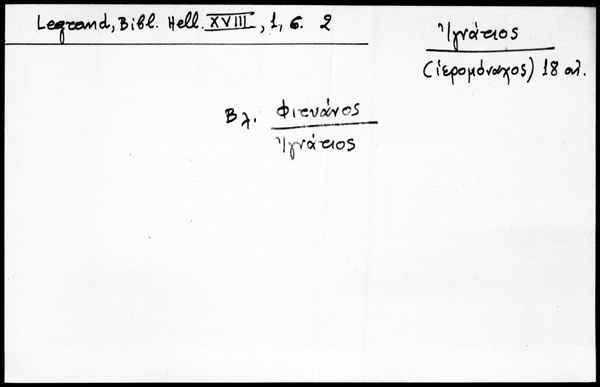 Legrand, Bibl. Hell. XVIII, 1, σ. 2
Ἰγνάτιος
(ἱερομόναχος) 18 αἰ.
Βλ. Φιτυάνος
Ἰγνάτιος